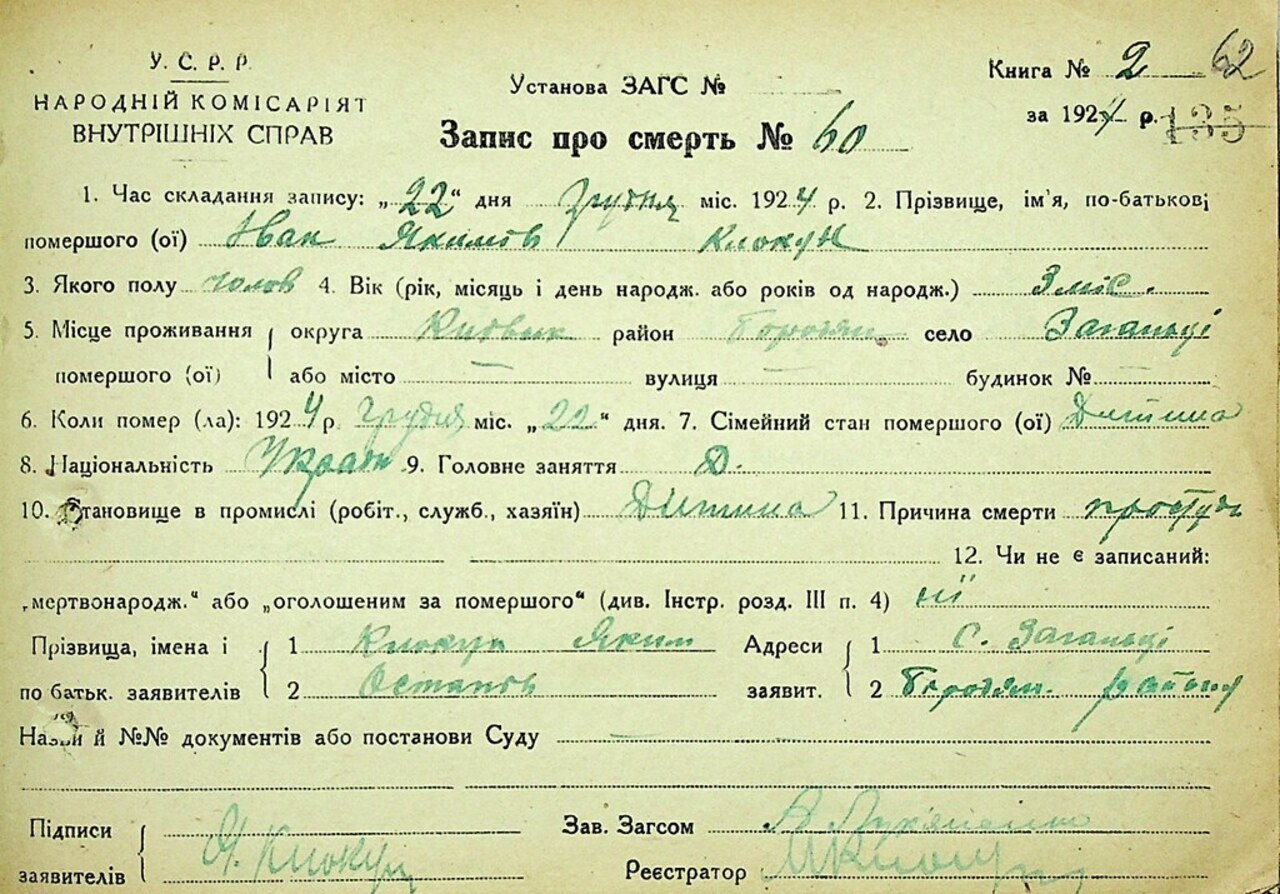 У. С. Р. Р.
НАРОДНІЙ КОМІСАРІЯТ
ВНУТРІШНІХ СПРАВ
Установа ЗАГС №
Книга № 2 62
за 1924 р. 135
Запис про смерть № 60
1. Час складання запису: „22“ дня грудня міс. 1924 р. 2. Прізвище, ім'я, по-батькові
помершого (ої) Іван Якимов Клокун
3. Якого полу чолов 4. Вік (рік, місяць і день народж. або років од народж.) 3 міс.
5. Місце проживання округа Київськ район Бородян. село Загальці
помершого (ої) або місто — вулиця — будинок №
6. Коли помер (ла): 1924 р. грудня міс. „22“ дня. 7. Сімейний стан помершого (ої) Дитина
8. Національність Україн 9. Головне заняття Д.
10. Становище в промислі (робіт., служб., хазяїн) Дитина 11. Причина смерти простуда
12. Чи не є записаний:
„мертвонародж.“ або „оголошеним за помершого“ (див. Інстр. розд. III п. 4) ні
Прізвища, імена і 1 Клокун Яким Адреси 1 С. Загальці
по батьк. заявителів 2 Остапов заявит. 2 Бородян. району
Назви й №№ документів або постанови Суду —
Підписи
заявителів Я. Клокун
Зав. Загсом
Реєстратор